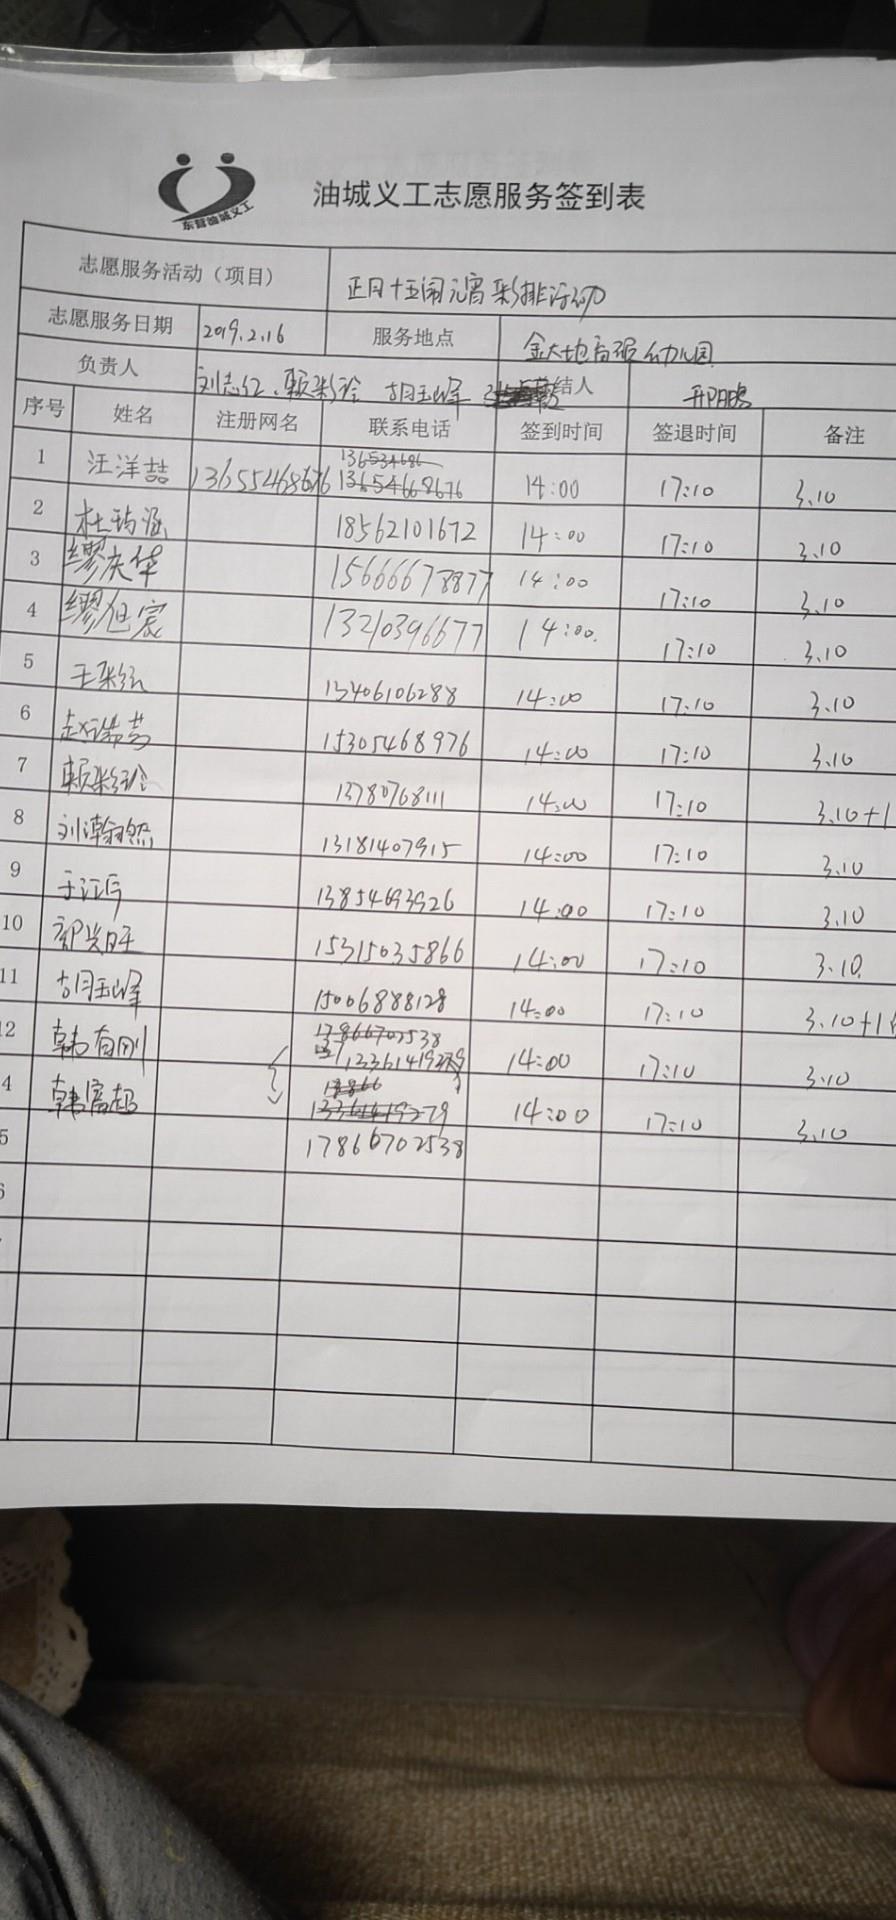 东营油城义工
油城义工志愿服务签到表
志愿服务活动（项目） 正月十五闹元宵彩排活动
志愿服务日期 2019.2.16 服务地点 金大地 幼儿园
负责人 胡玉峰 结人
序号 姓名 注册网名 联系电话 签到时间 签退时间 备注
1 汪洋喆 13655468676 14:00 17:10 3.10
2 杜 涵 18562101672 14:00 17:10 3.10
3 缪庆华 15666673877 14:00 17:10 3.10
4 缪旭宸 13210396677 14:00. 17:10 3.10
5 王 13406106288 14:00 17:10 3.10
6 赵 15305468976 14:00 17:10 3.10
7 13780768111 14:00 17:10 3.10+1
8 刘瀚然 13181407915 14:00 17:10 3.10
9 于江 13854693926 14:00 17:10 3.10
10 兴旺 15315035866 14:00 17:10 3.10.
11 胡玉峰 15006888128 14:00 17:10 3.10+1
2 韩有刚 13361419279 14:00 17:10 3.10
4 韩富超 14:00 17:10 3.10
5 17866702538